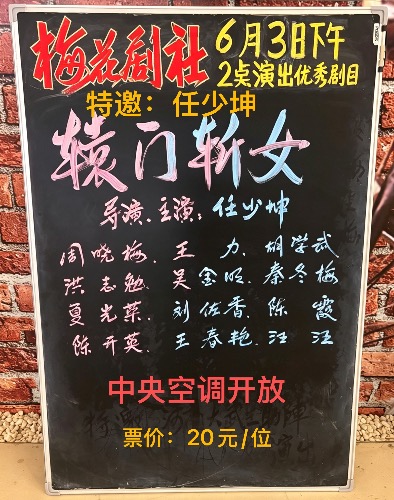 梅花剧社
6月3日下午
2点演出优秀剧目
特邀：任少坤
辕门斩女
导演.主演：任少坤
周晓梅、王 力、胡学武
洪志勉、吴金明、秦冬梅
夏光荣、刘佐香、陈 霞
陈开英、王春艳、汪 汪
中央空调开放
票价：20元/位